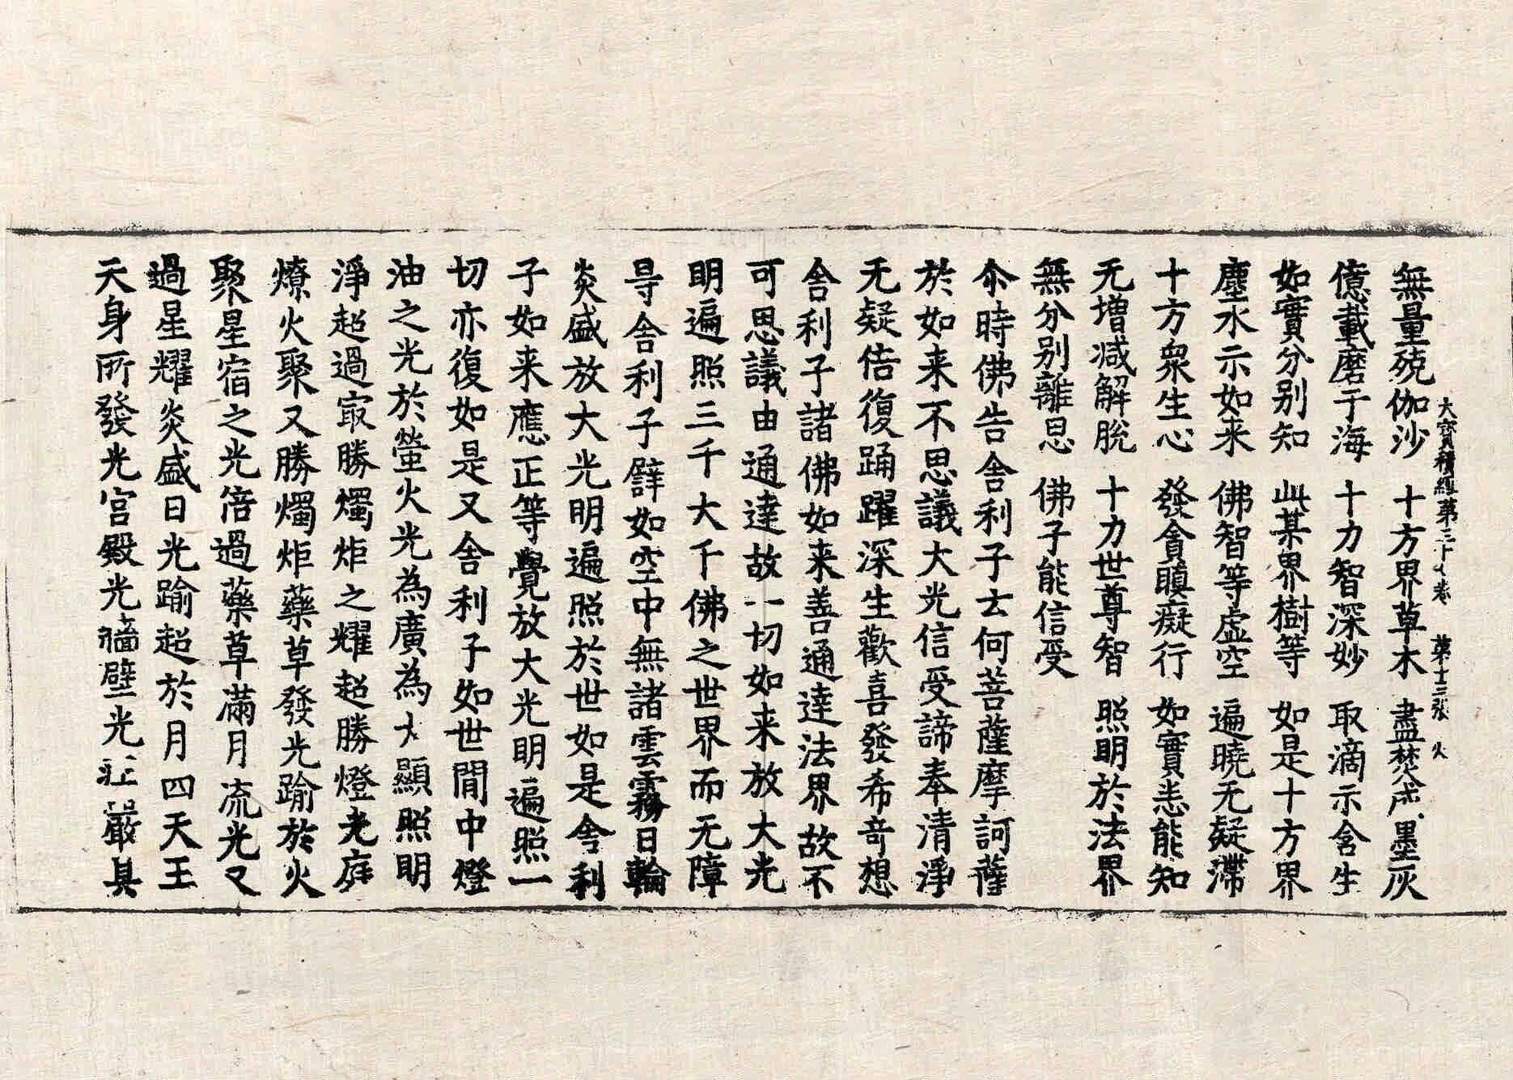 大寶積經第三十 卷 第十三張 火
無量殑伽沙 十方界草木 盡焚成墨灰
億載磨于海 十力智深妙 取滴示含生
如實分別知 此某界樹等 如是十方界
塵水示如来 佛智等虛空 遍曉无疑滯
十方衆生心 發貪瞋癡行 如實悉能知
无增减解脫 十力世尊智 照明於法界
無分別離思 佛子能信受
尒時佛告舍利子云何菩薩摩訶薩
於如来不思議大光信受諦奉清淨
无疑倍復踊躍深生歡喜發希竒想
舍利子諸佛如来善通達法界故不
可思議由通達故一切如来放大光
明遍照三千大千佛之世界而无障
㝵舍利子譬如空中無諸雲霧日輪
炎盛放大光明遍照於世如是舍利
子如来應正等覺放大光明遍照一
切亦復如是又舍利子如世間中燈
油之光於螢火光為廣為大顯照明
淨超過㝡勝燭炬之耀超勝燈光庭
燎火聚又勝燭炬藥草發光踰於火
聚星宿之光倍過藥草滿月流光又
過星耀炎盛日光踰超於月四天王
天身所發光宮殿光牆壁光莊嚴具